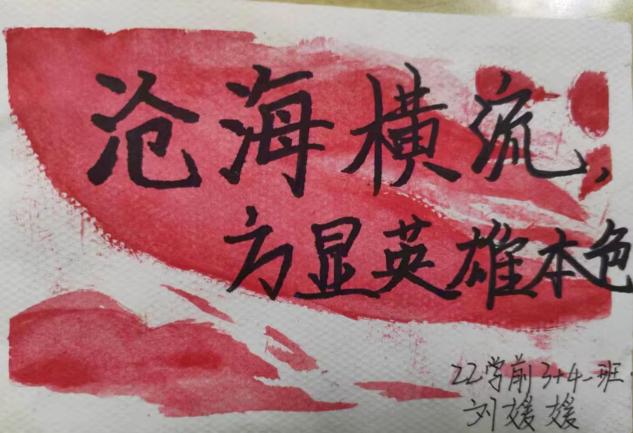 沧海横流，
方显英雄本色
22学前3+4一班
刘媛媛